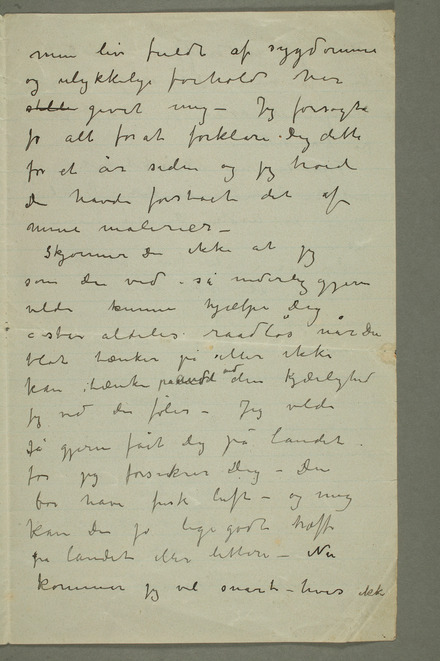 mine liv fuldt af sygdomme
og ulykkelige forhold har
givet mig – Jeg forsøgte
jo alt for at forklare Dig dette
for et år siden og jeg troed
Du havde forstaaet det af
mine malerier –
Skjønner Du ikke at jeg
som Du ved – så inderlig gjerne
vilde kunne hjælpe Dig
aldeles raadløs når Du
blot tænker på eller ikke
kan tænke på den kjærlighed
jeg ved Du føler – Jeg vilde
så gjerne fåt Dig på landet.
for jeg forsikrer Dig – Du
bør have frisk luft – og mig
kan Du jo lige godt træffe
på landet eller lettere – Nu
kommer jeg vel snart – hvis ikke